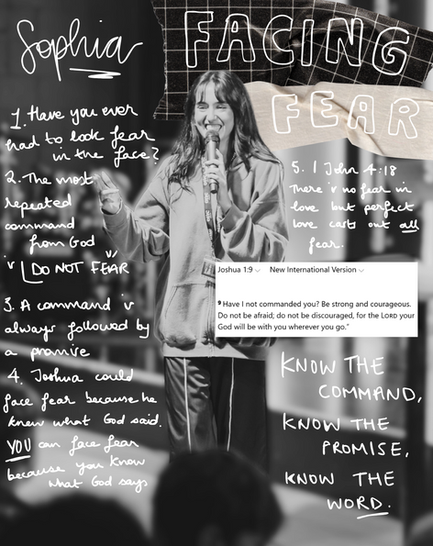 Sophia
FACING
FEAR
1. Have you ever
had to look fear
in the face?
2. The most
repeated
command
from God
is DO NOT FEAR
3. A command is
always followed by
a promise
4. Joshua could
face fear because he
knew what God said.
YOU can face fear
because you know
what God says
5. 1 John 4:18
There is no fear in
love but perfect
love casts out all
fear.
Joshua 1:9 New International Version
9 Have I not commanded you? Be strong and courageous.
Do not be afraid; do not be discouraged, for the LORD your
God will be with you wherever you go."
KNOW THE
COMMAND,
KNOW THE
PROMISE,
KNOW THE
WORD.